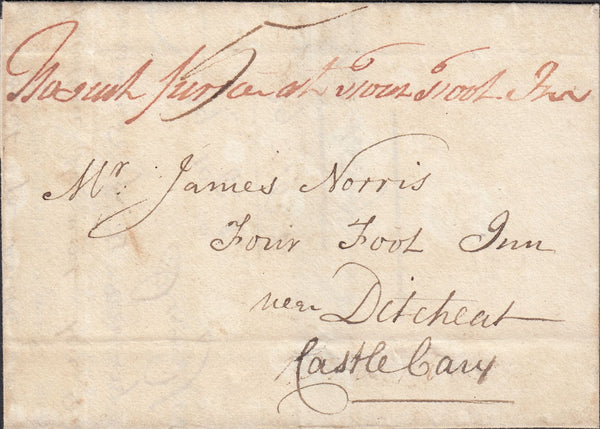 at Four Foot Inn
5
Mr. James Norris
Four Foot Inn
near Ditcheat
Castle Cary